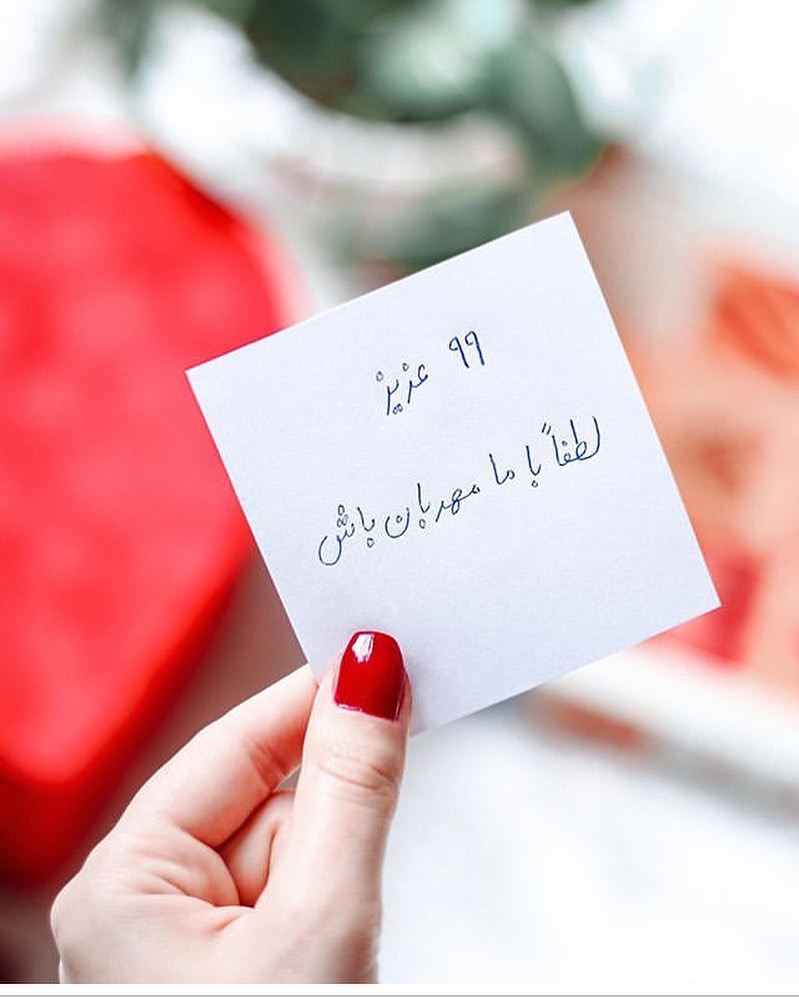 ۹۹ عزیز
لطفاً با ما مهربان باش